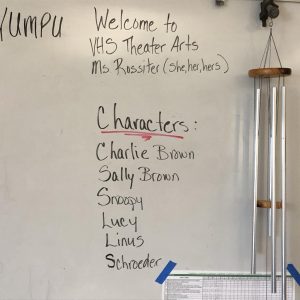 YUMPU
Welcome to
VHS Theater Arts
Ms Rossiter (she, her, hers)
Characters:
Charlie Brown
Sally Brown
Snoopy
Lucy
Linus
Schroeder